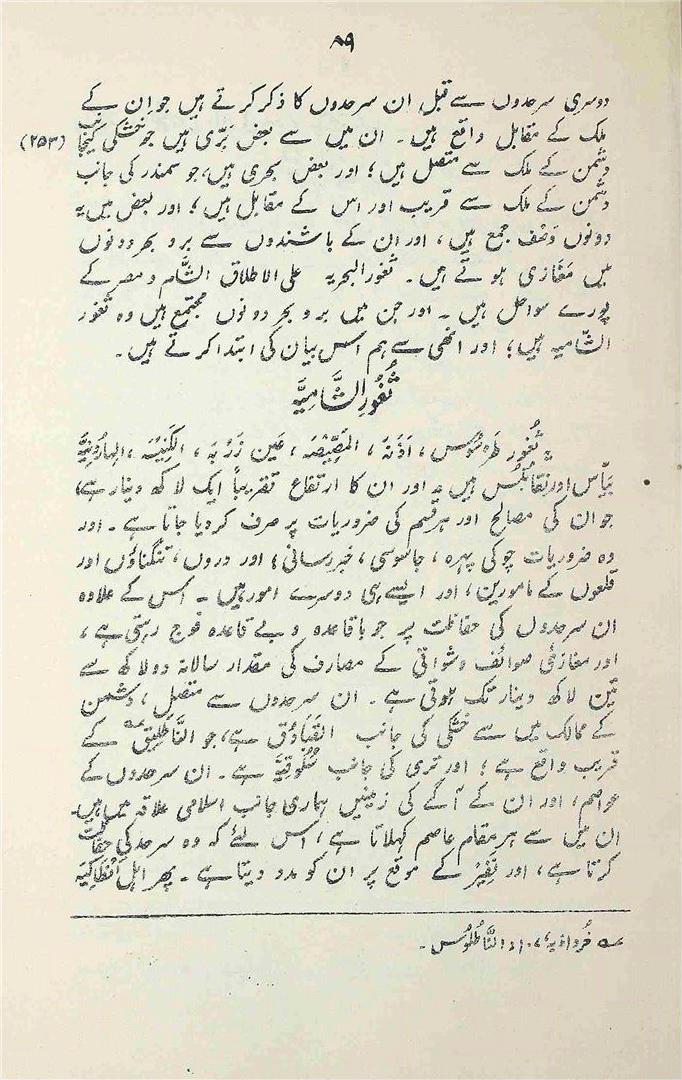 ۸۹
دوسری سرحدوں سے قبل، ان سرحدوں کا ذکر کرتے ہیں جو ان کے
ملک کے مقابل واقع ہیں۔ ان میں سے بعض بَرّی ہیں جو خشکی کیجانب (۲۵۳)
دشمن کے ملک سے متصل ہیں؛ اور بعض بحری ہیں، جو سمندر کی جانب
دشمن کے ملک سے قریب اور اس کے مقابل ہیں؛ اور بعض میں یہ
دونوں وصف جمع ہیں، اور ان کے باشندوں سے بر و بحر دونوں
میں مَغازی ہوتے ہیں۔ ثغور البحریہ علی الاطلاق الشّام و مصر کے
پورے سواحل ہیں۔ اور جن میں بر و بحر دونوں مجتمع ہیں وہ ثغور
الشّامیہ ہیں؛ اور انھی سے ہم اس بیان کی ابتدا کرتے ہیں۔
ثُغُورُ الشَّامِیَّہ
یہ ثُغُور طرسُوس، اَذَنَہ، المَصِّیْصَہ، عَین زَرْبَہ، الکَنِیْسَہ، الہارُونِیَّہ
بَیَّاس اور نِقابُلُس ہیں۔ اور ان کا ارتفاع تقریباً ایک لاکھ دینار ہے،
جو ان کی مصالح اور ہر قسم کی ضروریات پر صرف کردیا جاتا ہے۔ اور
وہ ضروریات چوکی پہرہ، جاسوسی، خبررسانی؛ اور دروں، تنگناؤں اور
قلعوں کے مامورین، اور ایسے ہی دوسرے امور ہیں۔ اس کے علاوہ
ان سرحدوں کی حفاظت پر جو باقاعدہ و بے قاعدہ فوج رہتی ہے،
اور مغازئی صوائف و شواتی کے مصارف کی مقدار سالانہ دو لاکھ سے
تین لاکھ دینار تک ہوتی ہے۔ ان سرحدوں سے متصل، دشمن
کے ممالک میں سے خشکی کی جانب القَبَاذُق ہے، جو النَّاطَلِیق ؎ کے
قریب واقع ہے؛ اور تری کی جانب سَلُوقِیَّہ ہے۔ ان سرحدوں کے
عواصم، اور ان کے آگے کی زمینیں ہماری جانب اسلامی علاقہ میں ہیں۔
ان میں سے ہر مقام عاصم کہلاتا ہے، اس لئے کہ وہ سرحد کی حفاظت
کرتا ہے، اور نَفِیْر کے موقع پر ان کو مدد دیتا ہے۔ پھر اہلِ اَنْطَاکِیَہ
؎ خُرداذبہ، ۱۰۷: النَّاطُلُوس۔